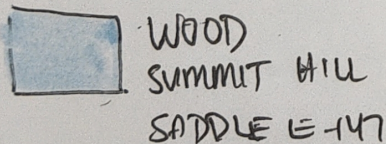 WOOD
SUMMIT HILL
SADDLE E-147